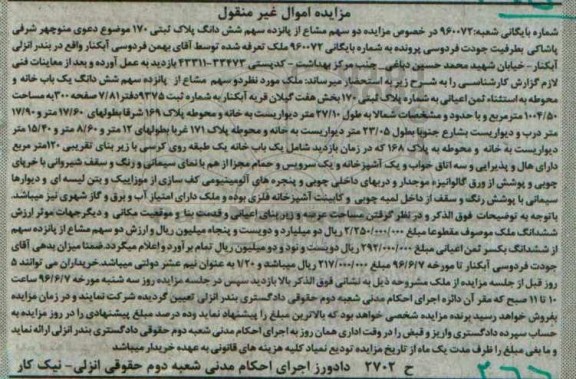 مزایده اموال غیر منقول
شماره بایگانی شعبه: ۹۶۰۰۷۲ در خصوص مزایده دو سهم مشاع از پانزده سهم شش دانگ پلاک ثبتی ۱۷۰ موضوع دعوی منوچهر شرفی
پاشاکی بطرفیت جودت فردوسی پرونده به شماره بایگانی ۹۶۰۰۷۲ ملک تعرفه شده توسط آقای بهمن فردوسی آبکنار واقع در بندر انزلی
آبکنار - خیابان شهید محمد حسین دباغی - جنب مرکز بهداشت - کدپستی ۳۳۴۷۳-۴۳۳۱۱ بازدید به عمل آورده و بعد از معاینات فنی
لازم گزارش کارشناسی را به شرح زیر به استحضار میرساند: ملک مورد نظر دو سهم مشاع از پانزده سهم شش دانگ یک باب خانه و
محوطه به استثناء ثمن اعیانی به شماره پلاک ثبتی ۱۷۰ بخش هفت گیلان قریه آبکنار به شماره ثبت ۹۳۷۵ دفتر ۷/۸۱ صفحه ۳۰۰ به مساحت
۱۰۰۴/۵۰ متر مربع و با حدود و مشخصات شمالا به طول ۲۷/۱۰ متر دیواریست به خانه و محوطه پلاک ۱۶۹ شرقا بطولهای ۱۷/۶۰ متر و ۱۷/۹۰
متر درب و دیواریست بشارع جنوبا بطول ۲۳/۰۵ متر دیواریست به خانه و محوطه پلاک ۱۷۱ غربا بطولهای ۱۲ متر و ۸/۶۰ متر و ۱۵/۴۰ متر
دیواریست به خانه و محوطه به پلاک ۱۶۸ که در زمان بازدید شامل یک باب خانه یک طبقه روی کرسی با زیر بنای تقریبی ۱۲۰ متر مربع
دارای هال و پذیرایی و سه اتاق خواب و یک آشپزخانه و یک سرویس و حمام مجزا از هم با نمای سیمانی و رنگ و سقف شیروانی با خرپای
چوبی و پوشش از ورق گالوانیزه موجدار و دربهای داخلی چوبی و پنجره های آلومینیومی کف سازی از موزاییک و بتن لیسه ای و دیوارها
سیمانی با پوشش رنگ و سقف از داخل لمبه چوبی و کابینت آشپزخانه فلزی بوده و ملک دارای امتیاز آب و برق و گاز شهری نیز میباشد.
باتوجه به توضیحات فوق الذکر و در نظر گرفتن مساحت عرصه و زیر بنای اعیانی و قدمت بنا و موقعیت مکانی و دیگر جهات موثر ارزش
ششدانگ ملک موصوف مقطوعا مبلغ ۲/۲۵۰/۰۰۰/۰۰۰ ریال دو میلیارد و دویست و پنجاه میلیون ریال و ارزش دو سهم مشاع از پانزده سهم
از ششدانگ بکسر ثمن اعیانی مبلغ ۲۹۲/۰۰۰/۰۰۰ ریال دویست و نود و دو میلیون ریال تمام برآورد و اعلام میگردد. ضمنا میزان بدهی آقای
جودت فردوسی آبکنار تا مورخه ۹۶/۶/۷ مبلغ ۲۱۷/۰۰۰/۰۰۰ ریال میباشد و ۱/۲۰ به عنوان نیم عشر دولتی میباشد. خریداران می توانند ۵
روز قبل از جلسه مزایده از ملک مشروحه ذیل به نشانی فوق الذکر بالا بازدید سپس در جلسه مزایده روز سه شنبه مورخه ۹۶/۶/۷ ساعت
۱۰ تا ۱۱ صبح که مقر آن دائره اجرای احکام مدنی شعبه دوم حقوقی دادگستری بندر انزلی تعیین گردیده شرکت نمایند و در زمان مزایده
بفروش خواهد رسید برنده مزایده شخصی خواهد بود که بالاترین مبلغ را پیشنهاد نماید وده درصد مبلغ پیشنهادی را در روز مزایده به
حساب سپرده دادگستری واریز و قبض را در وقت اداری همان روز به اجرای احکام مدنی شعبه دوم حقوقی دادگستری بندر انزلی ارائه نماید
و ما بقی مبلغ را ظرف مدت یک ماه از تاریخ مزایده تودیع نمایاد کلیه هزینه های قانونی به عهده خریدار میباشد
ح ۲۷۰۲ دادورز اجرای احکام مدنی شعبه دوم حقوقی انزلی - نیک کار